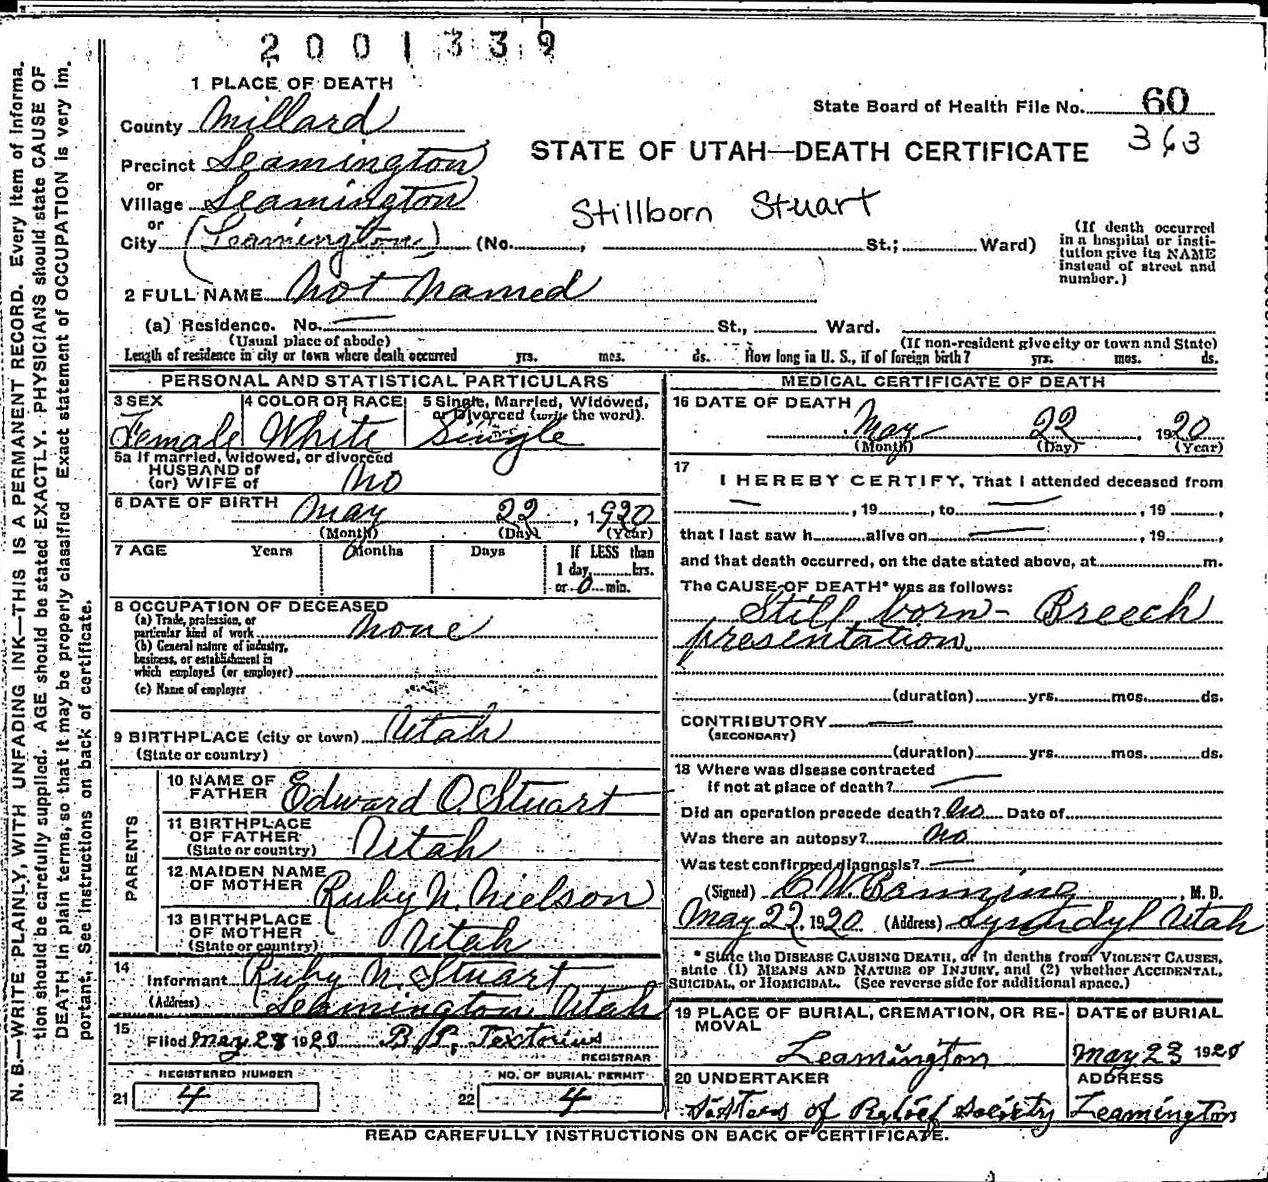 2001339
1 PLACE OF DEATH
County Millard
State Board of Health File No. 60
363
Precinct Leamington
or
Village Leamington
or
City (Leamington) (No. , St.; Ward)
STATE OF UTAH—DEATH CERTIFICATE
Stillborn Stuart
(If death occurred
in a hospital or insti-
tution give its NAME
instead of street and
number.)
2 FULL NAME Not Named
(a) Residence. No. — St., Ward.
(Usual place of abode) (If non-resident give city or town and State)
Length of residence in city or town where death occurred yrs. mos. ds. How long in U. S., if of foreign birth? yrs. mos. ds.
PERSONAL AND STATISTICAL PARTICULARS
3 SEX 4 COLOR OR RACE 5 Single, Married, Widowed,
or Divorced (write the word).
Female White Single
5a If married, widowed, or divorced
HUSBAND of
(or) WIFE of No
6 DATE OF BIRTH May 22, 1920
(Month) (Day) (Year)
7 AGE Years Months Days If LESS than
0
1 day, hrs.
or 0 min.
8 OCCUPATION OF DECEASED
(a) Trade, profession, or
particular kind of work none
(b) General nature of industry,
business, or establishment in
which employed (or employer)
(c) Name of employer
9 BIRTHPLACE (city or town) Utah
(State or country)
PARENTS
10 NAME OF
FATHER Edward O. Stuart
11 BIRTHPLACE
OF FATHER Utah
(State or country)
12 MAIDEN NAME
OF MOTHER Ruby N. Nielson
13 BIRTHPLACE
OF MOTHER Utah
(State or country)
14
Informant Ruby N. Stuart
(Address) Leamington Utah
15
Filed May 28 1920 B. P. Textorius
REGISTRAR
REGISTERED NUMBER NO. OF BURIAL PERMIT
21 4 22 4
MEDICAL CERTIFICATE OF DEATH
16 DATE OF DEATH
May 22, 1920
(Month) (Day) (Year)
17
I HEREBY CERTIFY, That I attended deceased from
—, 19 , to —, 19 ,
that I last saw h alive on —, 19 ,
and that death occurred, on the date stated above, at m.
The CAUSE OF DEATH* was as follows:
Still born - Breech
presentation.
(duration) yrs. mos. ds.
CONTRIBUTORY —
(SECONDARY)
(duration) yrs. mos. ds.
18 Where was disease contracted
if not at place of death? —
Did an operation precede death? No Date of
Was there an autopsy? No
Was test confirmed diagnosis? —
(Signed) , M. D.
May 22, 1920 (Address) Lynndyl Utah
* State the DISEASE CAUSING DEATH, or in deaths from VIOLENT CAUSES,
state (1) MEANS AND NATURE OF INJURY, and (2) whether ACCIDENTAL,
SUICIDAL, or HOMICIDAL. (See reverse side for additional space.)
19 PLACE OF BURIAL, CREMATION, OR RE-
MOVAL
Leamington
DATE of BURIAL
May 23 1920
20 UNDERTAKER
Sisters of Relief Society
ADDRESS
Leamington
READ CAREFULLY INSTRUCTIONS ON BACK OF CERTIFICATE.
N. B.—WRITE PLAINLY, WITH UNFADING INK—THIS IS A PERMANENT RECORD. Every item of informa-
tion should be carefully supplied. AGE should be stated EXACTLY. PHYSICIANS should state CAUSE OF
DEATH in plain terms, so that it may be properly classified. Exact statement of OCCUPATION is very im-
portant. See instructions on back of certificate.